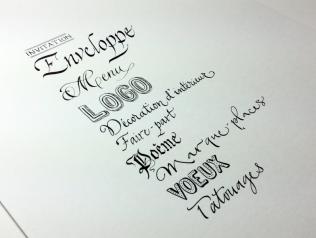 INVITATION
Enveloppe
Menu
LOGO
Décoration d'intérieure
Faire-part
Poème
Marque-places
VOEUX
Tatouages